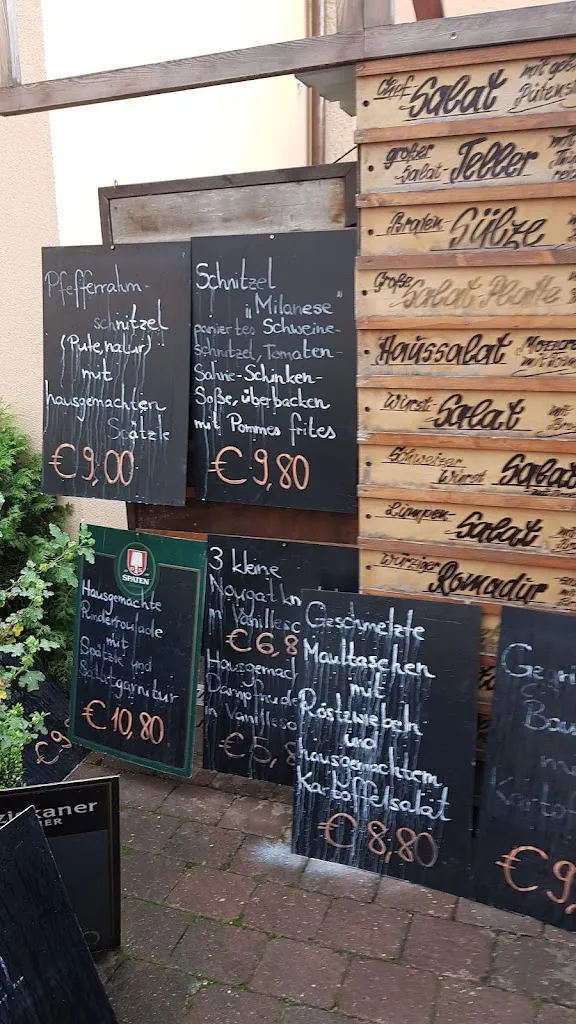 Chef Salat mit
großer Salat Teller mit
Braten Sülze
Große Salat Platte
Haussalat
Wurst-Salat mit
Schweizer Wurst Salat
Lumpen-Salat mit
würziger Romadur
Pfefferrahm-
schnitzel
(Pute, natur)
mit
hausgemachten
Spätzle
€ 9,00
Schnitzel
"Milanese"
paniertes Schweine-
schnitzel, Tomaten-
Sahne-Schinken-
Soße, überbacken
mit Pommes frites
€ 9,80
SPATEN
Hausgemachte
Rinderroulade
mit
Spätzle und
Salatgarnitur
€ 10,80
3 kleine
Nougatkn
m Vanilleso
€ 6,8
Hausgemach
Dampfnude
m Vanilleso
€ 5,8
Geschmelzte
Maultaschen
mit
Röstzwiebeln
und
hausgemachtem
Kartoffelsalat
€ 8,80
Kartof
€ 9,
€ 9
kaner